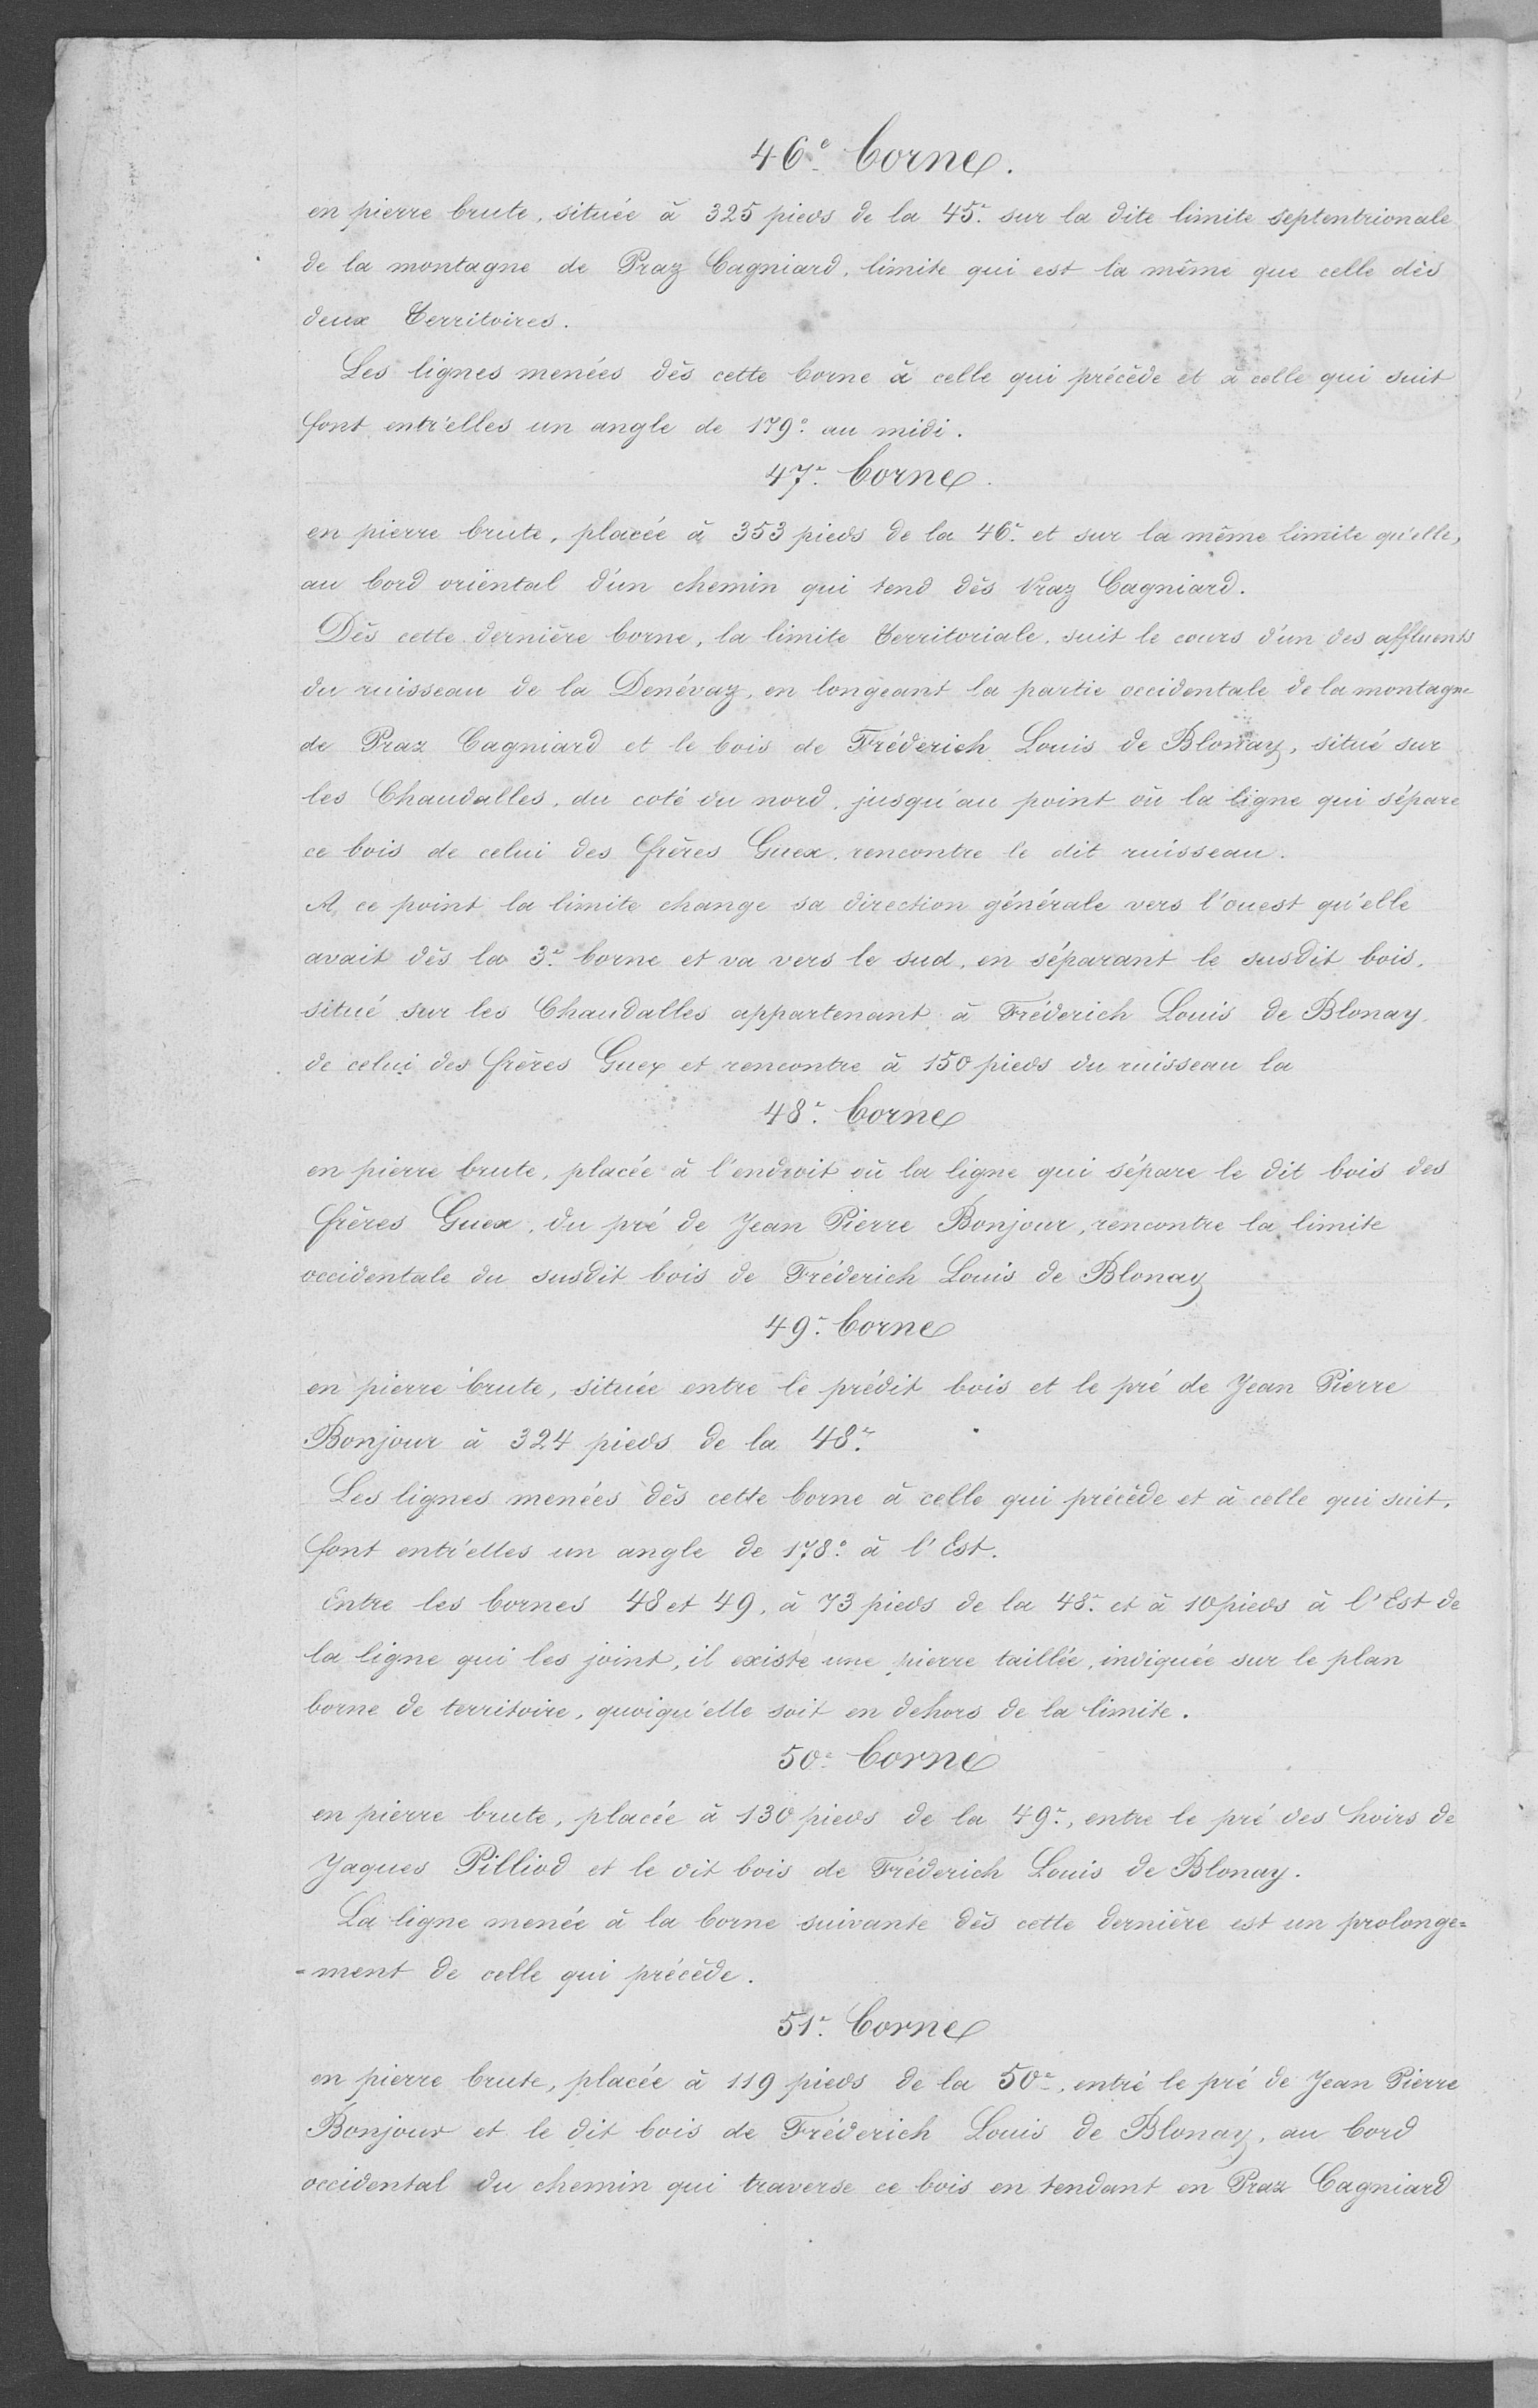 46.e borne.
en pierre brute, située à 325 pieds de la 45.e sur la dite limite septentrionale
de la montagne de Praz Cagniard, limite qui est la même que celle dès
deux Territoires.
Les lignes menées dès cette borne à celle qui précède et à celle qui suit
font entr'elles un angle de 179.° au midi.
47.e borne.
en pierre brute, placée à 353 pieds de la 46.e et sur la même limite qu'elle,
au bord oriental d'un chemin qui tend dès Praz Cagniard.
Dès cette dernière borne, la limite Territoriale, suit le cours d'un des affluents
du ruisseau de la Denévaz, en longeant la partie occidentale de la montagne
de Praz Cagniard et le bois de Fréderich Louis de Blonay, situé sur
les Chaudalles, du coté du nord, jusqu'au point où la ligne qui sépare
ce bois de celui des frères Guex, rencontre le dit ruisseau.
A ce point la limite change sa direction générale vers l'ouest qu'elle
avait dès la 3.e borne et va vers le sud, en séparant le susdit bois,
situé sur les Chaudalles appartenant à Fréderich Louis de Blonay,
de celui des frères Guex et rencontre à 150 pieds du ruisseau la
48.e borne
en pierre brute, placée à l'endroit où la ligne qui sépare le dit bois des
frères Guex, du pré de Jean Pierre Bonjour, rencontre la limite
occidentale du susdit bois de Fréderich Louis de Blonay
49.e borne
en pierre brute, située entre le prédit bois et le pré de Jean Pierre
Bonjour à 324 pieds de la 48.e
Les lignes menées dès cette borne à celle qui précède et à celle qui suit,
font entr'elles un angle de 178.° à l'Est.
Entre les bornes 48 et 49, à 73 pieds de la 48.e et à 10 pieds à l'Est de
la ligne qui les joint, il existe une pierre taillée, indiquée sur le plan
borne de territoire, quoiqu'elle soit en dehors de la limite.
50.e borne
en pierre brute, placée à 130 pieds de la 49.e, entre le pré des hoirs de
Jaques Pilliod et le dit bois de Fréderich Louis de Blonay.
La ligne menée à la borne suivante dès cette dernière est un prolonge=
=ment de celle qui précède.
51.e borne
en pierre brute, placée à 119 pieds de la 50.e, entre le pré de Jean Pierre
Bonjour et le dit bois de Fréderich Louis de Blonay, au bord
occidental du chemin qui traverse ce bois en tendant en Praz Cagniard